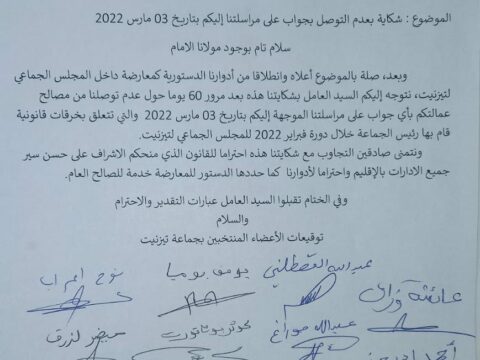 الموضوع : شكاية بعدم التوصل بجواب على مراسلتنا إليكم بتاريخ 03 مارس 2022
سلام تام بوجود مولانا الامام
وبعد، صلة بالموضوع أعلاه وانطلاقا من أدوارنا الدستورية كمعارضة داخل المجلس الجماعي
لتيزنيت، نتوجه إليكم السيد العامل بشكايتنا هذه بعد مرور 60 يوما حول عدم توصلنا من مصالح
عمالتكم بأي جواب على مراسلتنا الموجهة إليكم بتاريخ 03 مارس 2022 والتي تتعلق بخرقات قانونية
قام بها رئيس الجماعة خلال دورة فبراير 2022 للمجلس الجماعي لتيزنيت.
ونتمنى صادقين التجاوب مع شكايتنا هذه احتراما للقانون الذي منحكم الاشراف على حسن سير
جميع الادارات بالإقليم واحتراما لأدوارنا كما حددها الدستور للمعارضة خدمة للصالح العام.
وفي الختام تقبلوا السيد العامل عبارات التقدير والاحترام
والسلام
توقيعات الأعضاء المنتخبين بجماعة تيزنيت
عبد الله القسطلني
يومي يوميا
نوح اعراب
عائشة
عبد الله
لزرق